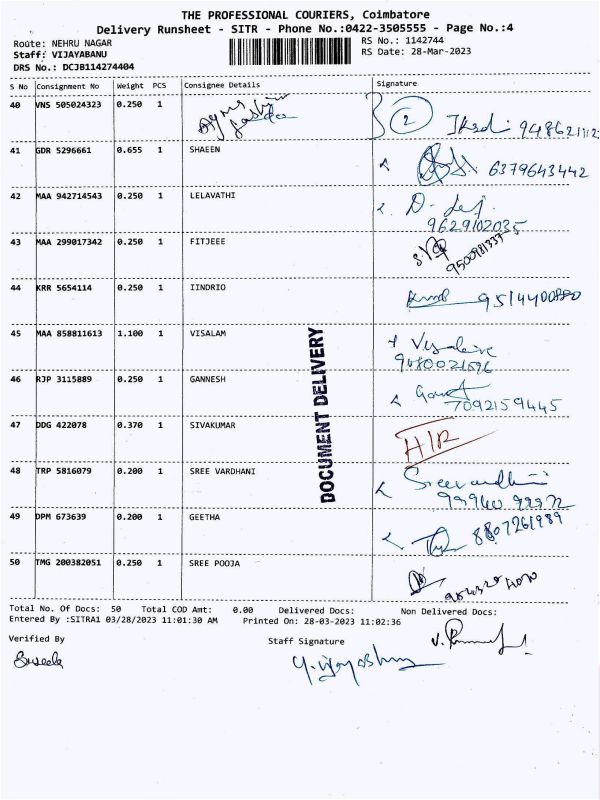 THE PROFESSIONAL COURIERS, Coimbatore
Delivery Runsheet - SITR - Phone No.:0422-3505555 - Page No.:4
Route: NEHRU NAGAR
RS No.: 1142744
Staff: VIJAYABANU
RS Date: 28-Mar-2023
DRS No.: DCJB114274404
S No Consignment No Weight PCS Consignee Details Signature
40 VNS 505024323 0.250 1 2
41 GDR 5296661 0.655 1 SHAEEN 6379643442
42 MAA 942714543 0.250 1 LELAVATHI
9629102035
43 MAA 299017342 0.250 1 FITJEEE
9500981337
44 KRR 5654114 0.250 1 IINDRIO
45 MAA 858811613 1.100 1 VISALAM
46 RJP 3115889 0.250 1 GANNESH
7092159445
47 DDG 422078 0.370 1 SIVAKUMAR
48 TRP 5816079 0.200 1 SREE VARDHANI Sreevardhini
49 DPM 673639 0.200 1 GEETHA 8807261989
50 TMG 200382051 0.250 1 SREE POOJA
DOCUMENT DELIVERY
Total No. Of Docs: 50 Total COD Amt: 0.00 Delivered Docs: Non Delivered Docs:
Entered By :SITRA1 03/28/2023 11:01:30 AM Printed On: 28-03-2023 11:02:36
Verified By
Staff Signature